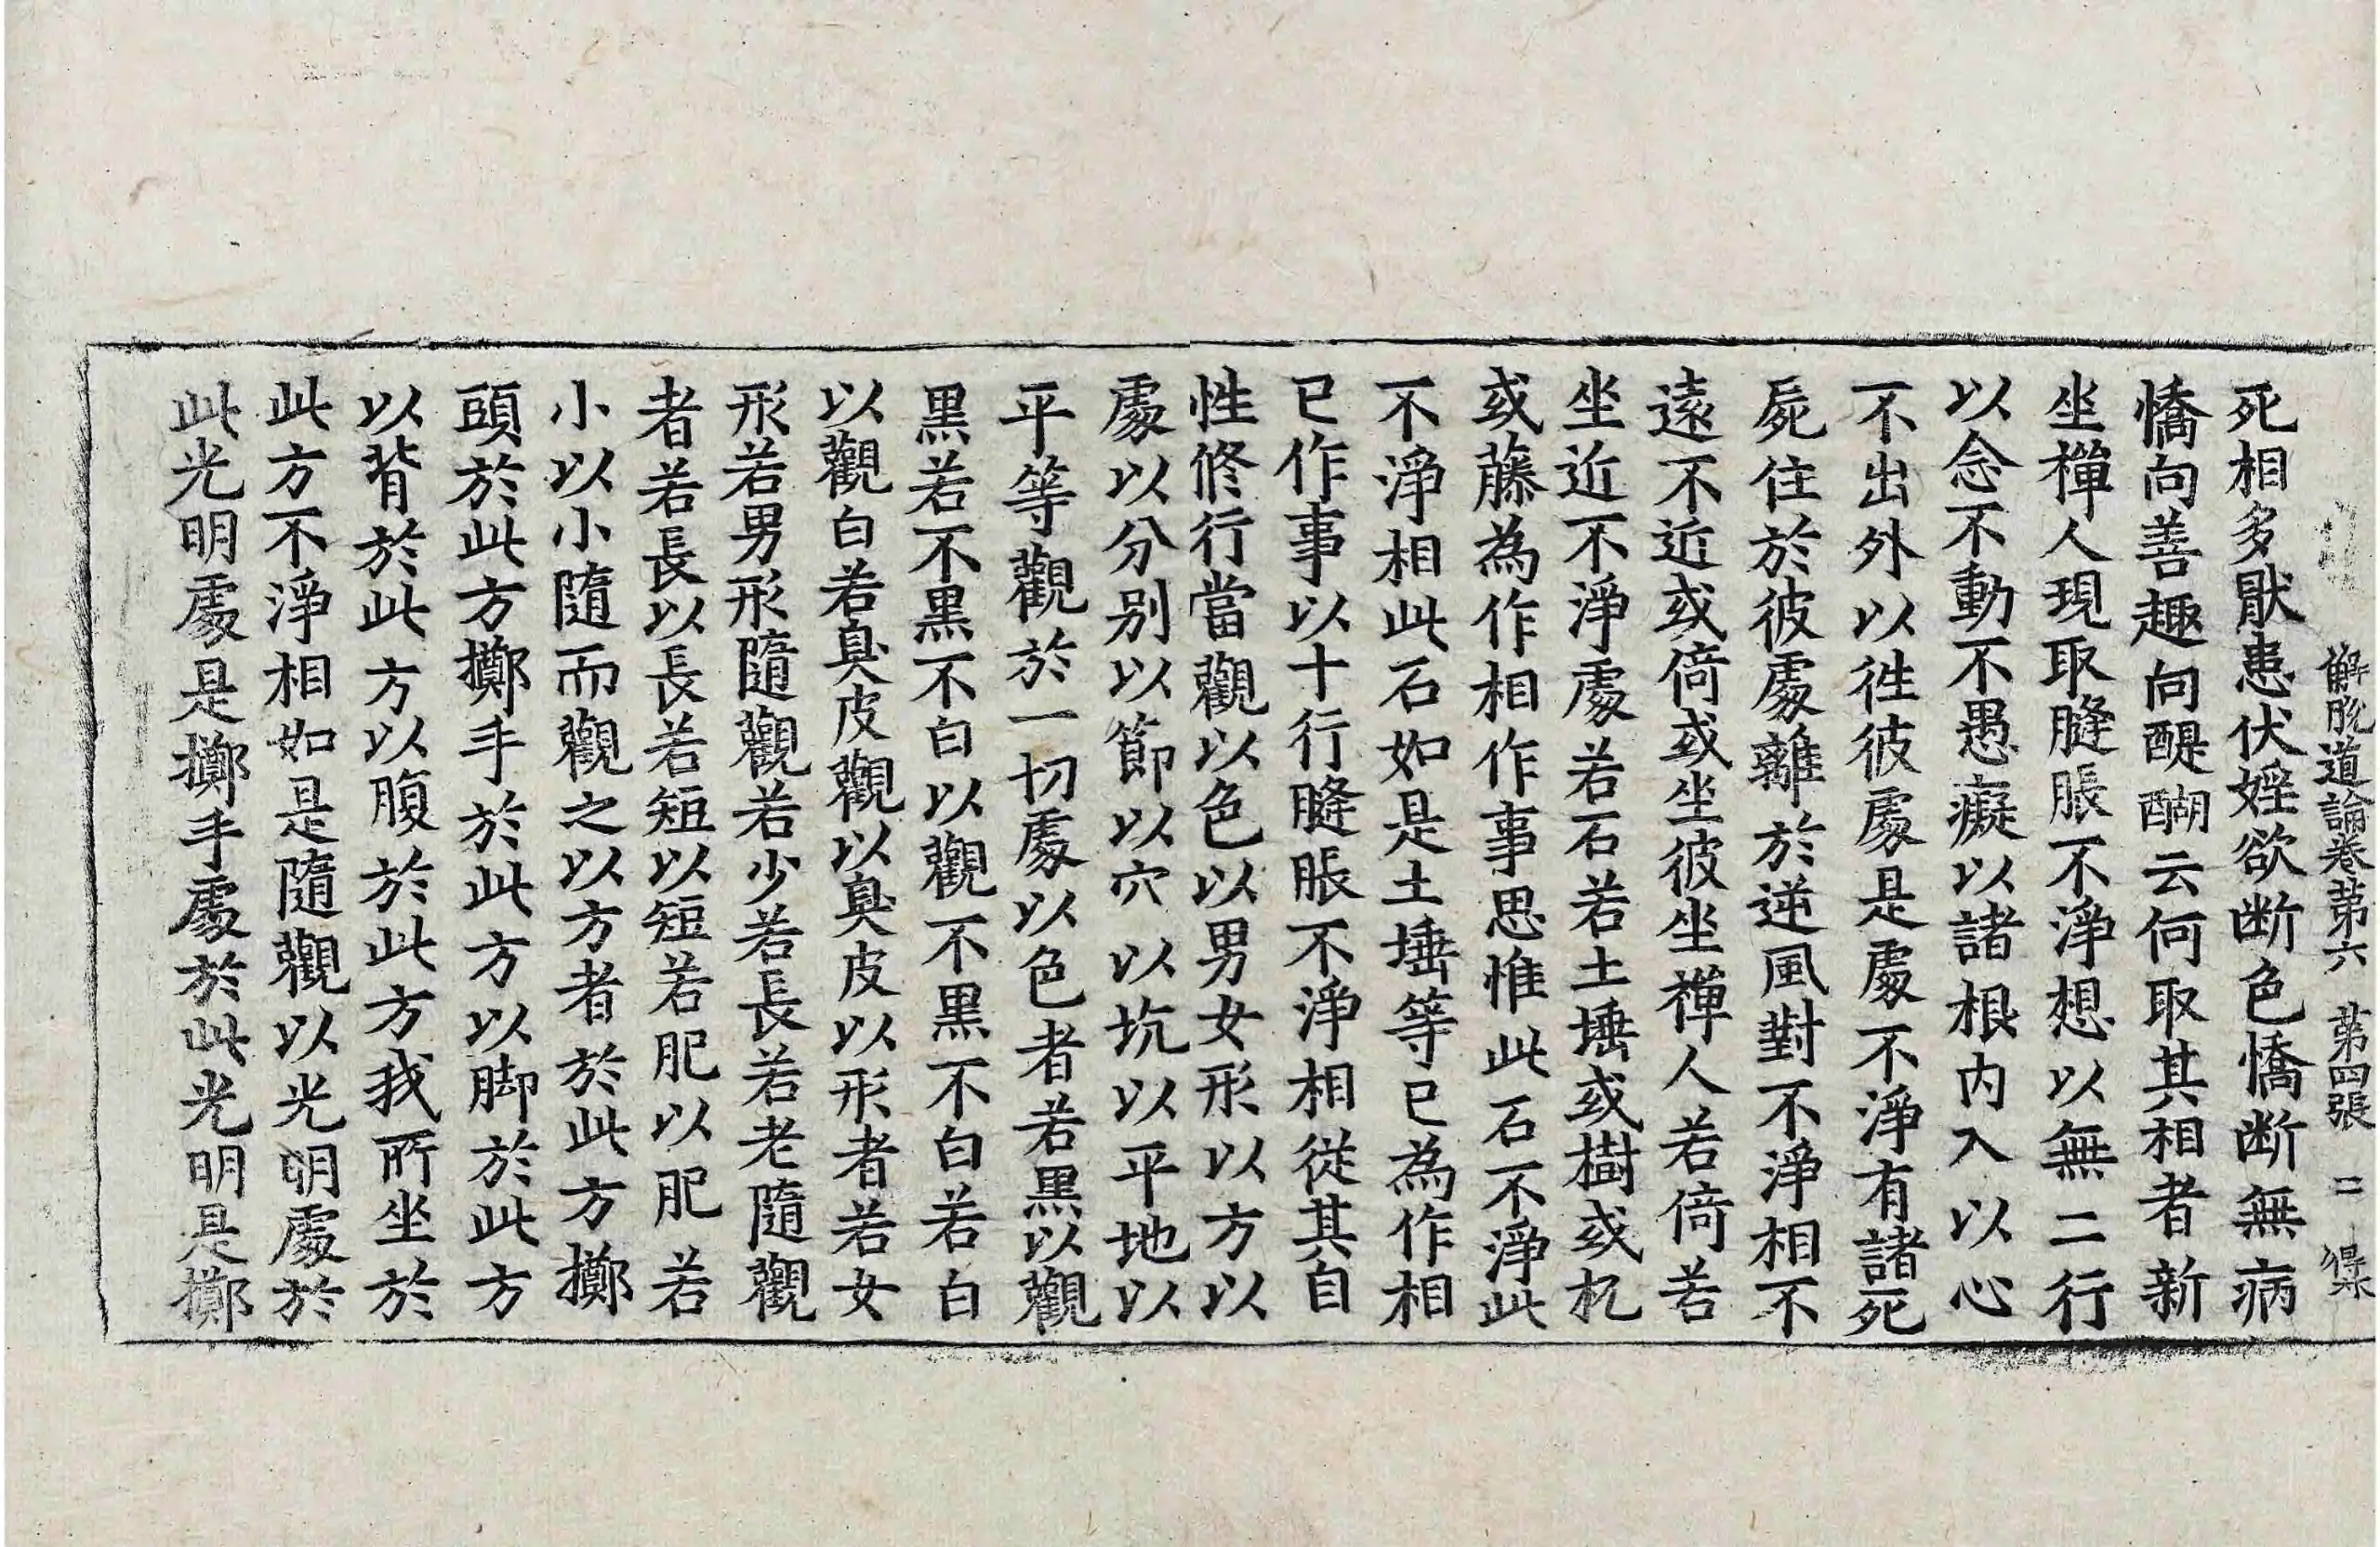 解脫道論卷苐六　苐四張　二　㝵
死相多猒患伏婬欲断色憍断無病
憍向善趣向醍醐云何取其相者新
坐禪人現取膖脹不淨想以無二行
以念不動不愚癡以諸根內入以心
不出外以徃彼處是處不淨有諸死
屍住於彼處離於逆風對不淨相不
遠不近或倚或坐彼坐禪人若倚若
坐近不淨處若石若土埵或樹或杌
或藤為作相作事思惟此石不淨此
不淨相此石如是土埵等已為作相
已作事以十行膖脹不淨相從其自
性修行當觀以色以男女形以方以
處以分別以節以穴以坑以平地以
平等觀於一切處以色者若黑以觀
黑若不黑不白以觀不黑不白若白
以觀白若臭皮觀以臭皮以形者若女
形若男形隨觀若少若長若老隨觀
者若長以長若短以短若肥以肥若
小以小隨而觀之以方者於此方擲
頭於此方擲手於此方以脚於此方
以背於此方以腹於此方我所坐於
此方不淨相如是隨觀以光明處於
此光明處是擲手處於此光明是擲